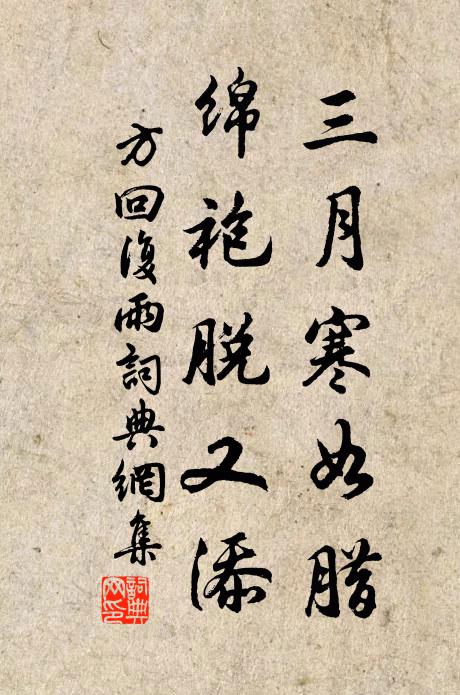 三月寒如腊
绵袍脱又添
方回復雨詞典網集
詞典
网印